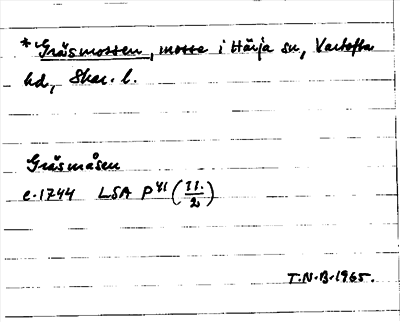 * Gräsmossen, mosse i Härja sn, Vartofta
hd, Skar. l.
Gräsmåsen
c. 1744 LSA P 41 (11./2)
T.N.B. 1965.